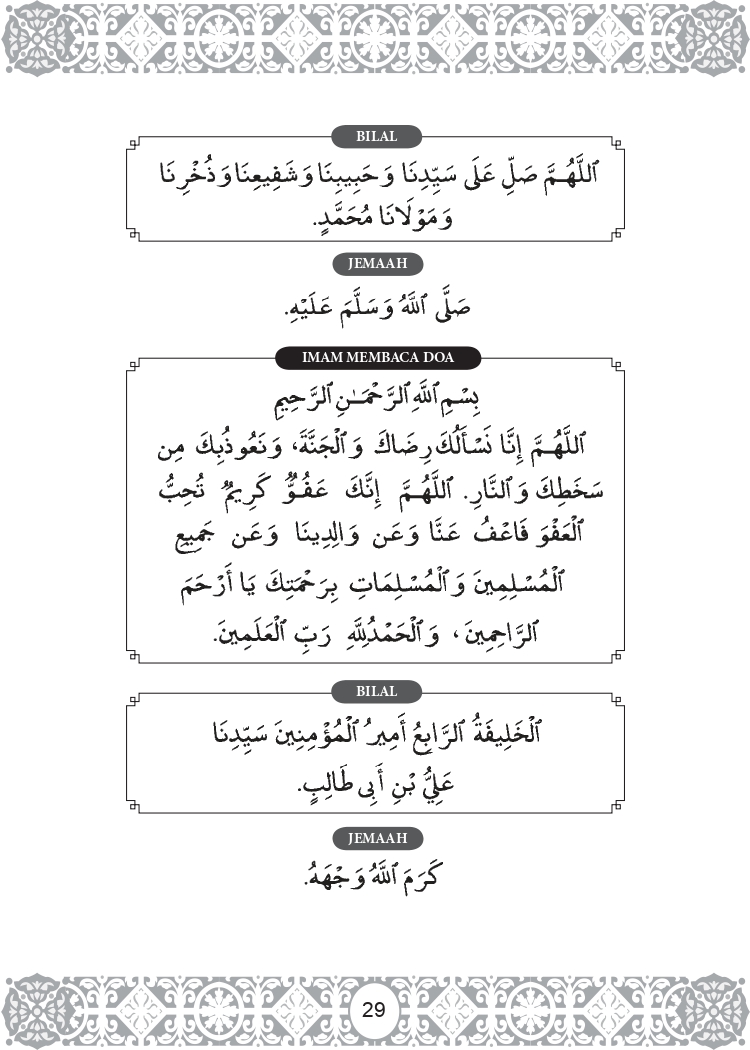 BILAL
ٱللَّهُمَّ صَلِّ عَلَى سَيِّدِنَا وَحَبِيبِنَا وَشَفِيعِنَا وَذُخْرِنَا
وَمَوْلَانَا مُحَمَّدٍ.
JEMAAH
صَلَّى ٱللَّهُ وَسَلَّمَ عَلَيْهِ.
IMAM MEMBACA DOA
بِسْمِ ٱللَّهِ ٱلرَّحْمَـٰنِ ٱلرَّحِيمِ
ٱللَّهُمَّ إِنَّا نَسْأَلُكَ رِضَاكَ وَٱلْجَنَّةَ، وَنَعُوذُبِكَ مِن
سَخَطِكَ وَٱلنَّارِ. ٱللَّهُمَّ إِنَّكَ عَفُوٌّ كَرِيمٌ تُحِبُّ
ٱلْعَفْوَ فَاعْفُ عَنَّا وَعَن وَالِدِينَا وَعَن جَمِيعِ
ٱلْمُسْلِمِينَ وَٱلْمُسْلِمَاتِ بِرَحْمَتِكَ يَا أَرْحَمَ
ٱلرَّاحِمِينَ، وَٱلْحَمْدُلِلَّهِ رَبِّ ٱلْعَلَمِينَ.
BILAL
ٱلْخَلِيفَةُ ٱلرَّابِعُ أَمِيرُ ٱلْمُؤْمِنِينَ سَيِّدِنَا
عَلِيُّ بْنِ أَبِى طَالِبٍ.
JEMAAH
كَرَمَ ٱللَّهُ وَجْهَهُ.
29